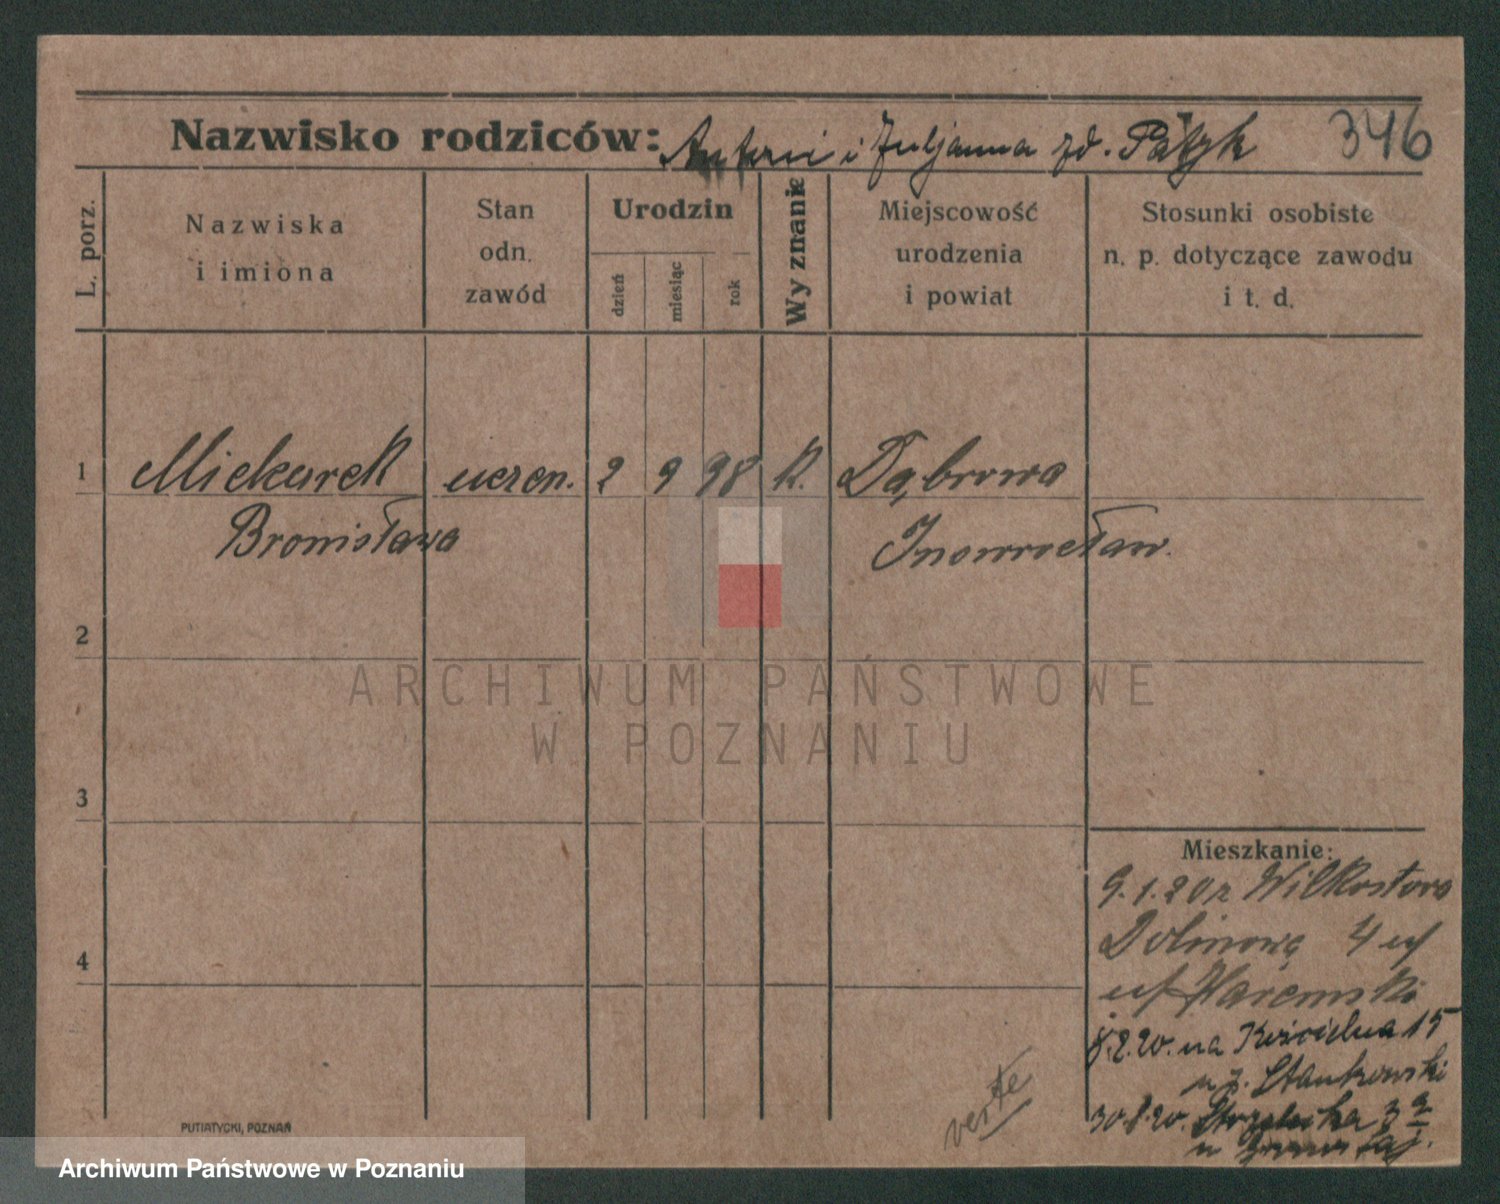 Nazwisko rodziców: Antoni i Juljanna zd. Patyk 346
L. porz.
Nazwiska
i imiona
Stan
odn.
zawód
Urodzin
dzień
miesiąc
rok
Wyznanie
Miejscowość
urodzenia
i powiat
Stosunki osobiste
n. p. dotyczące zawodu
i t. d.
1 Miekurek uczen. 2 9 98 k. Dąbrowa
Bronisława Inowrocław.
2
ARCHIWUM PAŃSTWOWE
W POZNANIU
3
Mieszkanie:
9.1.20 z
Dolinową 4
4
8.2.20. na Kościelna 15
u J. Stankowski
30.8.20. Strzelecka 3a
verte
PUTIATYCKI, POZNAŃ
Archiwum Państwowe w Poznaniu